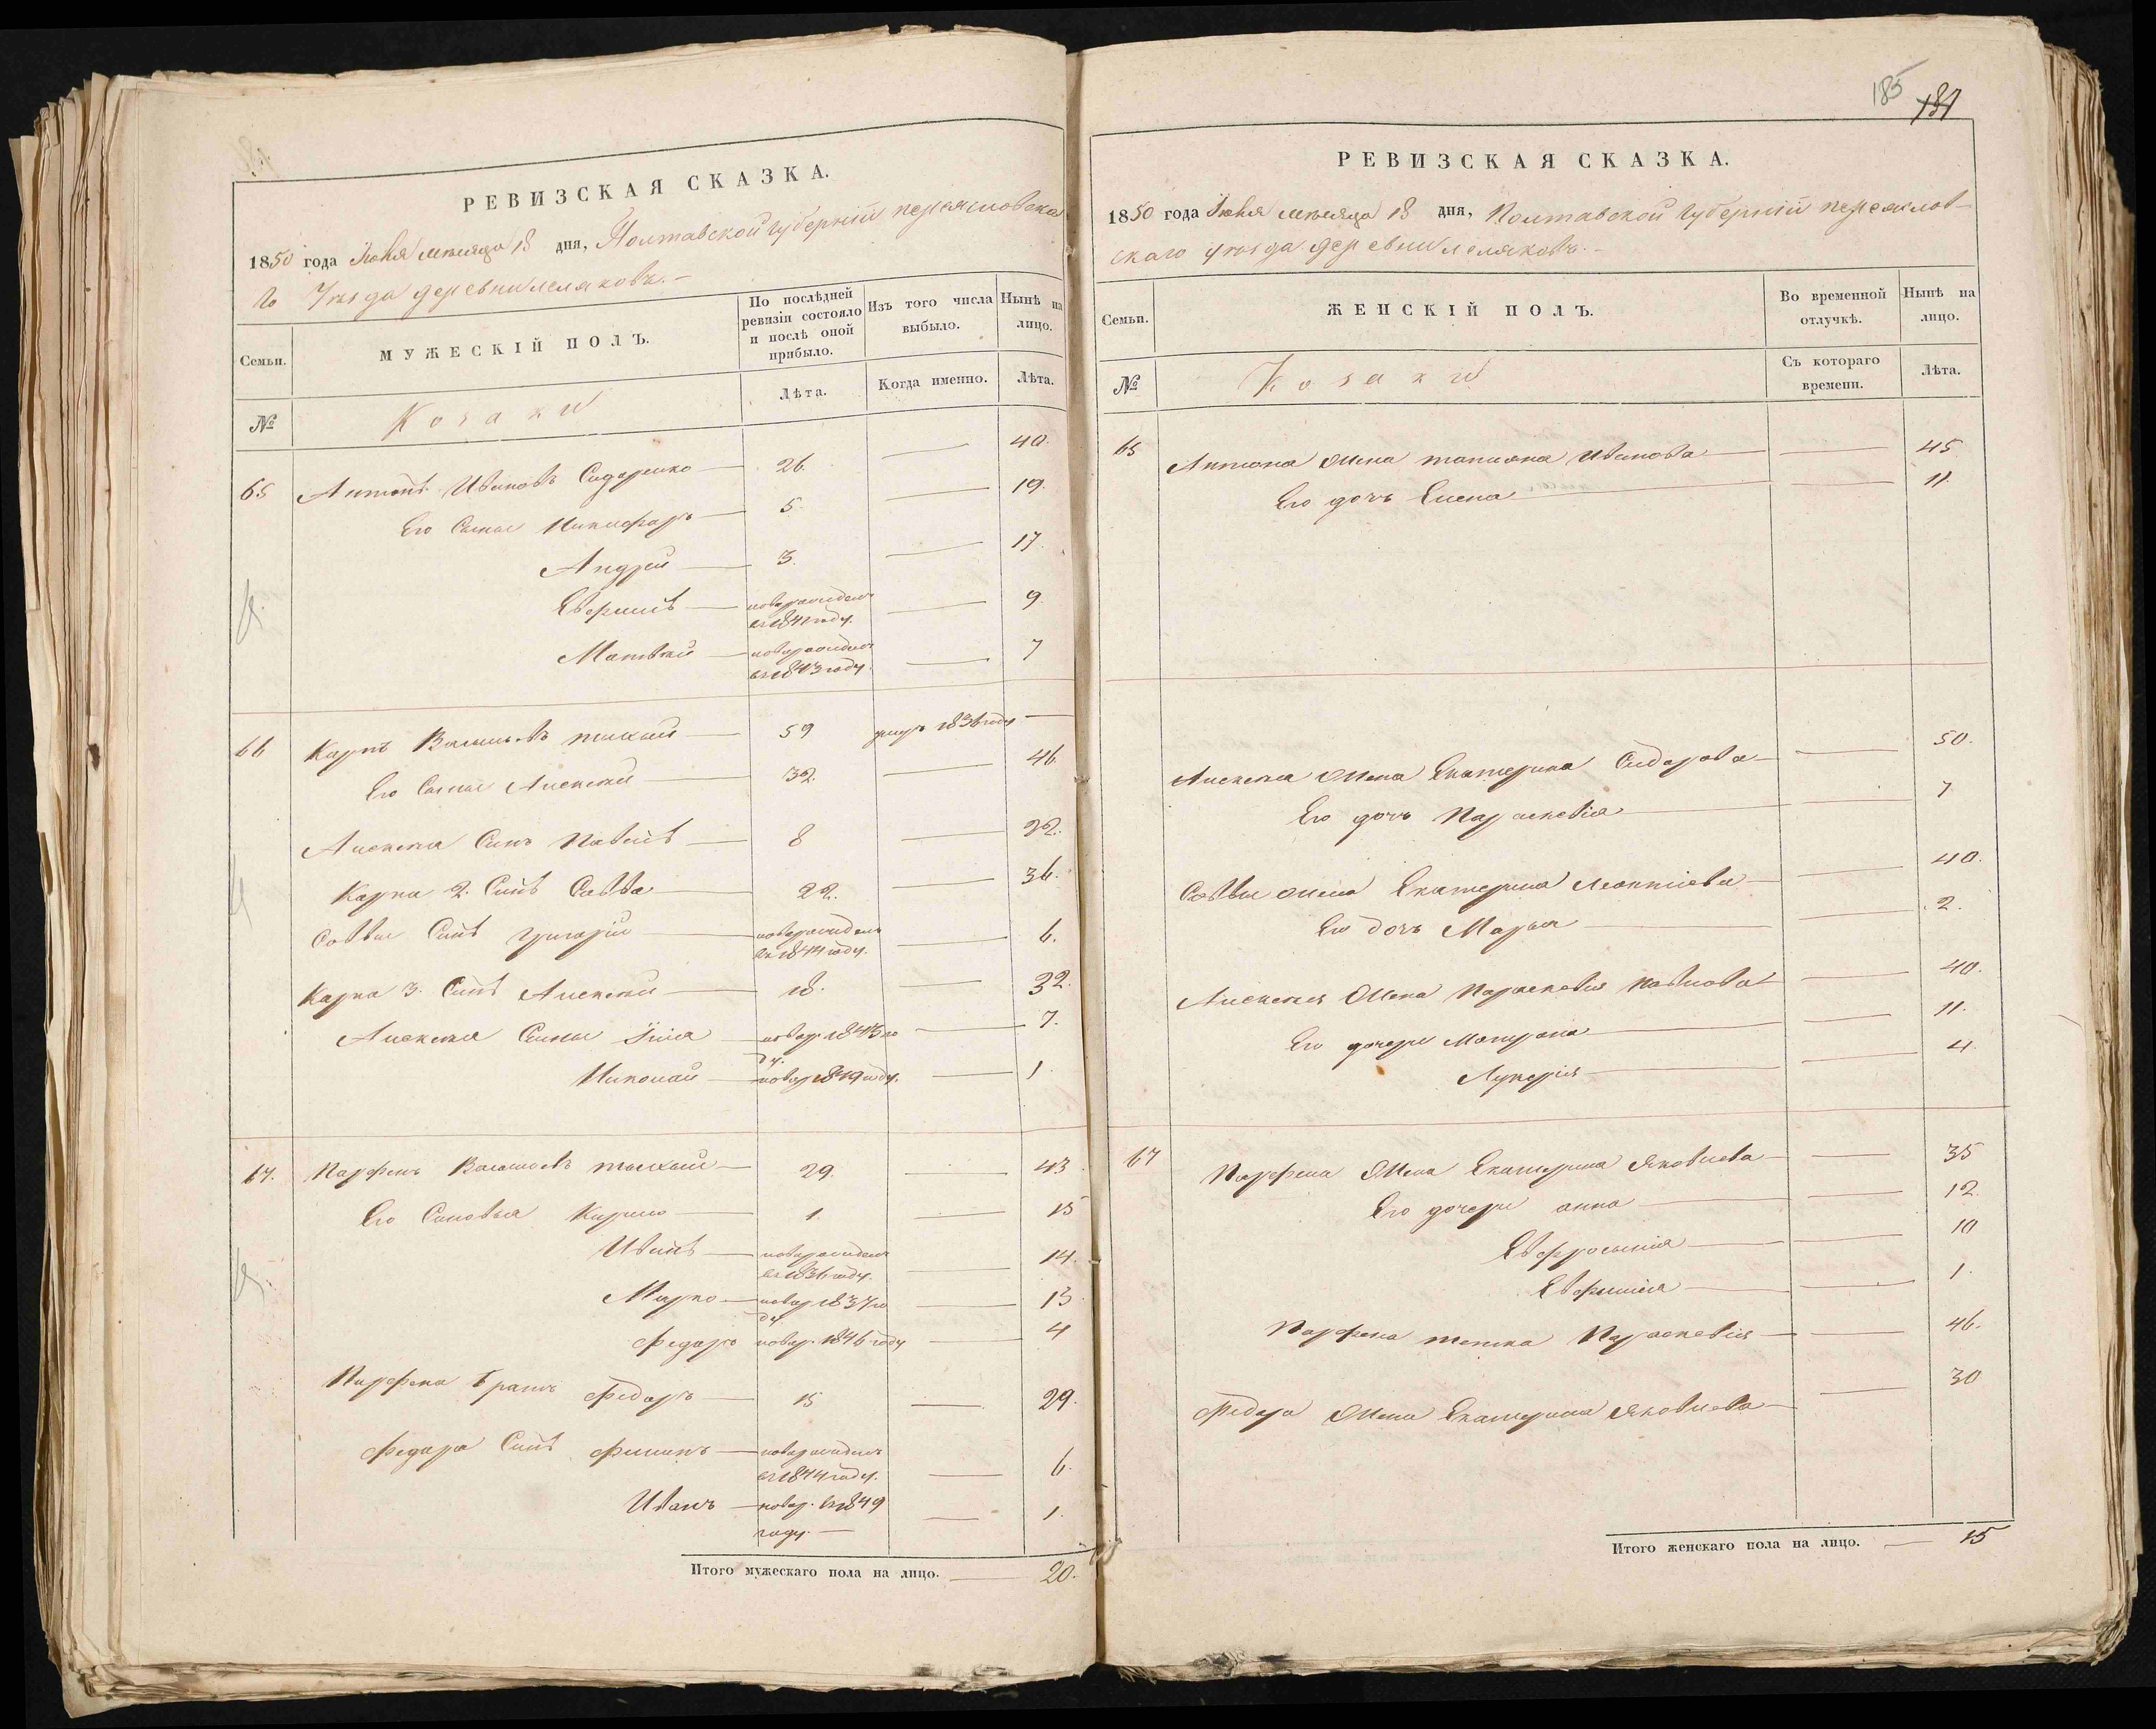 РЕВИЗСКАЯ СКАЗКА.
1850 года Іюня месяца 18 дня, Полтавской губерніи переясловска
го Уезда деревни леляковъ.-
Семьи.
МУЖЕСКІЙ ПОЛЪ.
По послѣдней ревизіи состояло и послѣ оной прибыло.
Изъ того числа выбыло.
Нынѣ на лицо.
№
Козаки
Лѣта.
Когда именно.
Лѣта.
65 Антонъ Ивановъ Сидоренко — 26. — 40.
Его Сыны Никифоръ — 5. — 19.
Андрей — 3. — 17.
Евфимъ — новорожденъ — 9
въ 1841 году.
Матвѣй — новорожденъ — 7
въ 1843 году.
66 Карпъ Васильевъ — 59 умръ 1836 году —
Его Сыны Алексѣй — 32. — 46
Алексѣя Синъ Павелъ — 8 — 22.
Карпа 2. Синъ Савва — 22. — 36.
Саввы Синъ григорій — новорожденъ — 6.
въ 1844 году.
Карпа 3. Синъ Алексѣй — 18. — 32.
Алексѣя Сыны Ілія — новор. 1843 го — 7.
ду.
Николай — новор 1849 году. — 1.
67. Парфенъ Васильевъ — 29. — 43
Его Синовья Кирило — 1. — 15
Иванъ — новорожденъ — 14.
въ 1836 году.
Марко — новор 1837 го — 13
ду
Федоръ новор. 1846 году — 4
Парфена братъ Федоръ — 15 — 29.
Федора Синъ Филипъ — новорожденъ
въ 1844 году. — 6.
Иванъ — новор. въ 1849 — 1.
году. —
Итого мужескаго пола на лицо. — 20.
185 184
РЕВИЗСКАЯ СКАЗКА.
1850 года Іюня месяца 18 дня, Полтавской губерніи переяслов-
скаго уезда деревни леляковъ.-
Семьи.
ЖЕНСКІЙ ПОЛЪ.
Во временной отлучкѣ.
Нынѣ на лицо.
№
Козаки
Съ котораго времени.
Лѣта.
65 Антона Жена татияна Иванова — — 45
Его дочь Елена — — 11.
Алексѣя Жена Екатерина Сидорова — — 50.
Его дочь Параскевія — — 7
Саввы жена Екатерина Леонтіева — — 40.
Его дочь Марья — — 2.
Алексѣя Жена Параскевія Павлова — — 40.
Его дочери Мотрона — — 11.
Лукерія — — 4.
67 Парфена Жена Екатерина Яковлева — — 35
Его дочери анна — — 12
Евфросинія — — 10
Евфимія — — 1.
Парфена тетка Параскевія — — 46.
Федора Жена Екатерина Яковлева — — 30
Итого женскаго пола на лицо. — 15